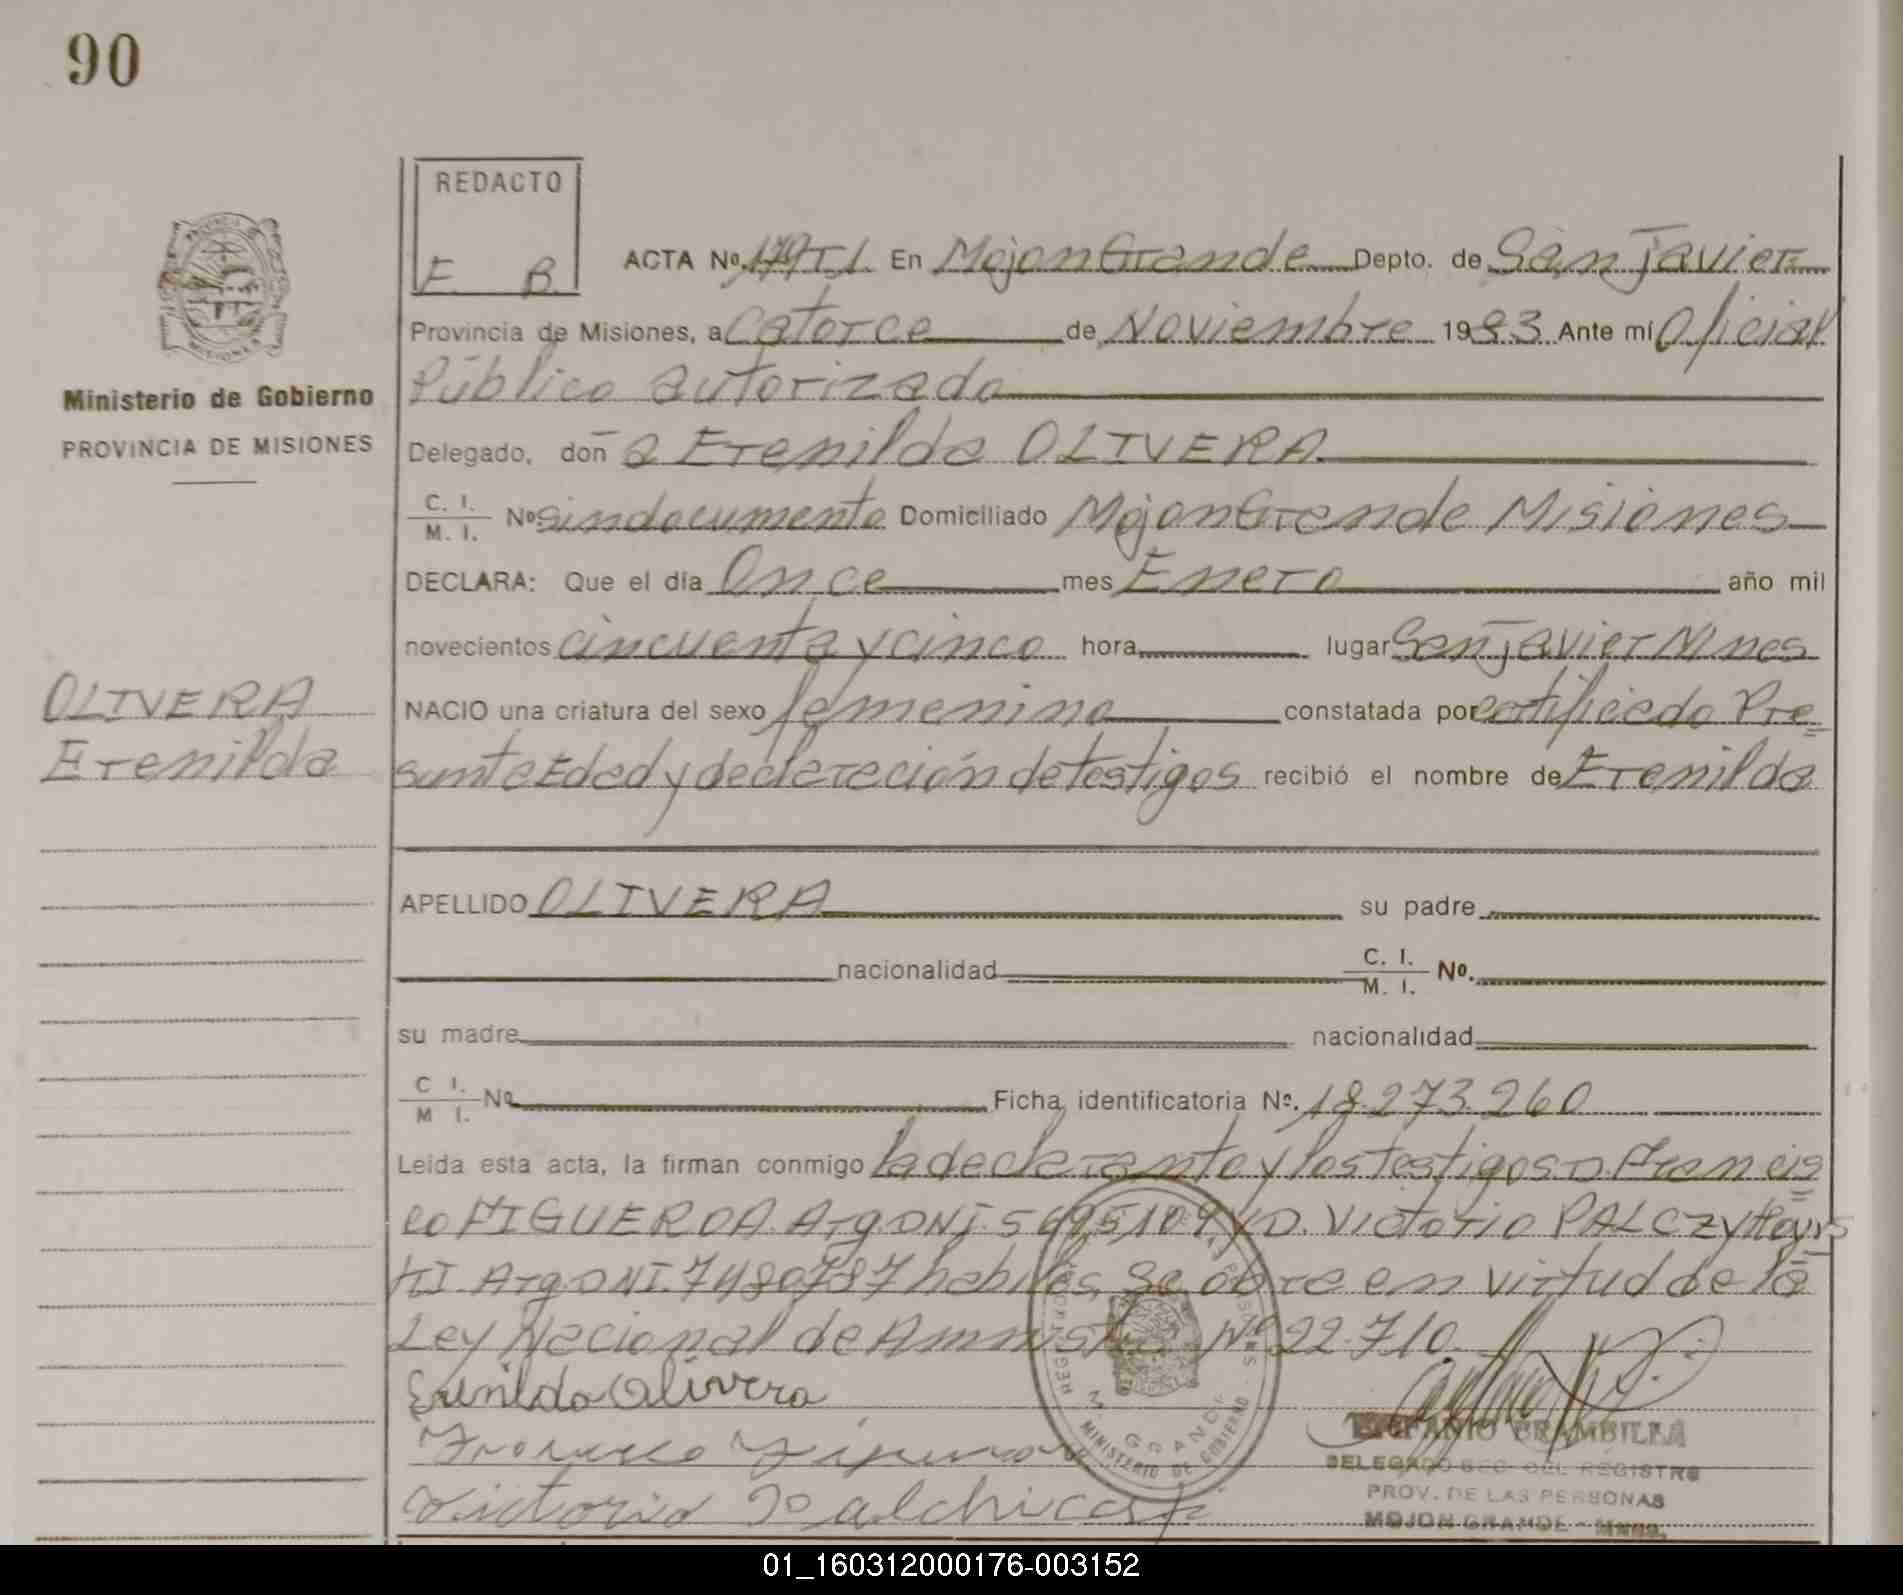 90
REDACTO
E. B.
ACTA Nº 179 T I. En Mojon Grande Depto. de San Javier
Provincia de Misiones, a Catorce de Noviembre 1983 Ante mí Oficial
Público autorizado
Ministerio de Gobierno
PROVINCIA DE MISIONES
Delegado, doña Erenilda OLIVERA
C. I. / M. I. Nº sin documento Domiciliado Mojon Grande Misiones
DECLARA: Que el día Once mes Enero año mil
novecientos cincuenta y cinco hora lugar San Javier Mnes
OLIVERA
NACIO una criatura del sexo femenino constatada por certificado Pre=
Erenilda
sunta Edad y declaración de testigos recibió el nombre de Erenilda
APELLIDO OLIVERA su padre
nacionalidad C. I. / M. I. Nº.
su madre nacionalidad
C I. / M I. Nº Ficha identificatoria Nº. 18.273.260
Leída esta acta, la firman conmigo la declarante y los testigos D. Francis=
co FIGUEROA. Arg DNI. 5695109 y D. Victorio PALCZYKOWS=
KI. Arg DNI. 7480787 habiles, Se obra en virtud de la
Ley Nacional de Amnistia Nº 22.710.
Erenilda Olivera
Victorio
REGISTRO PROV. DE LAS PERSONAS
M. GRANDE
MINISTERIO DE GOBIERNO
BRAMBILLA
DELEGADO SEC. DEL REGISTRO
PROV. DE LAS PERSONAS
MOJON GRANDE - Mnes.
01_160312000176-003152